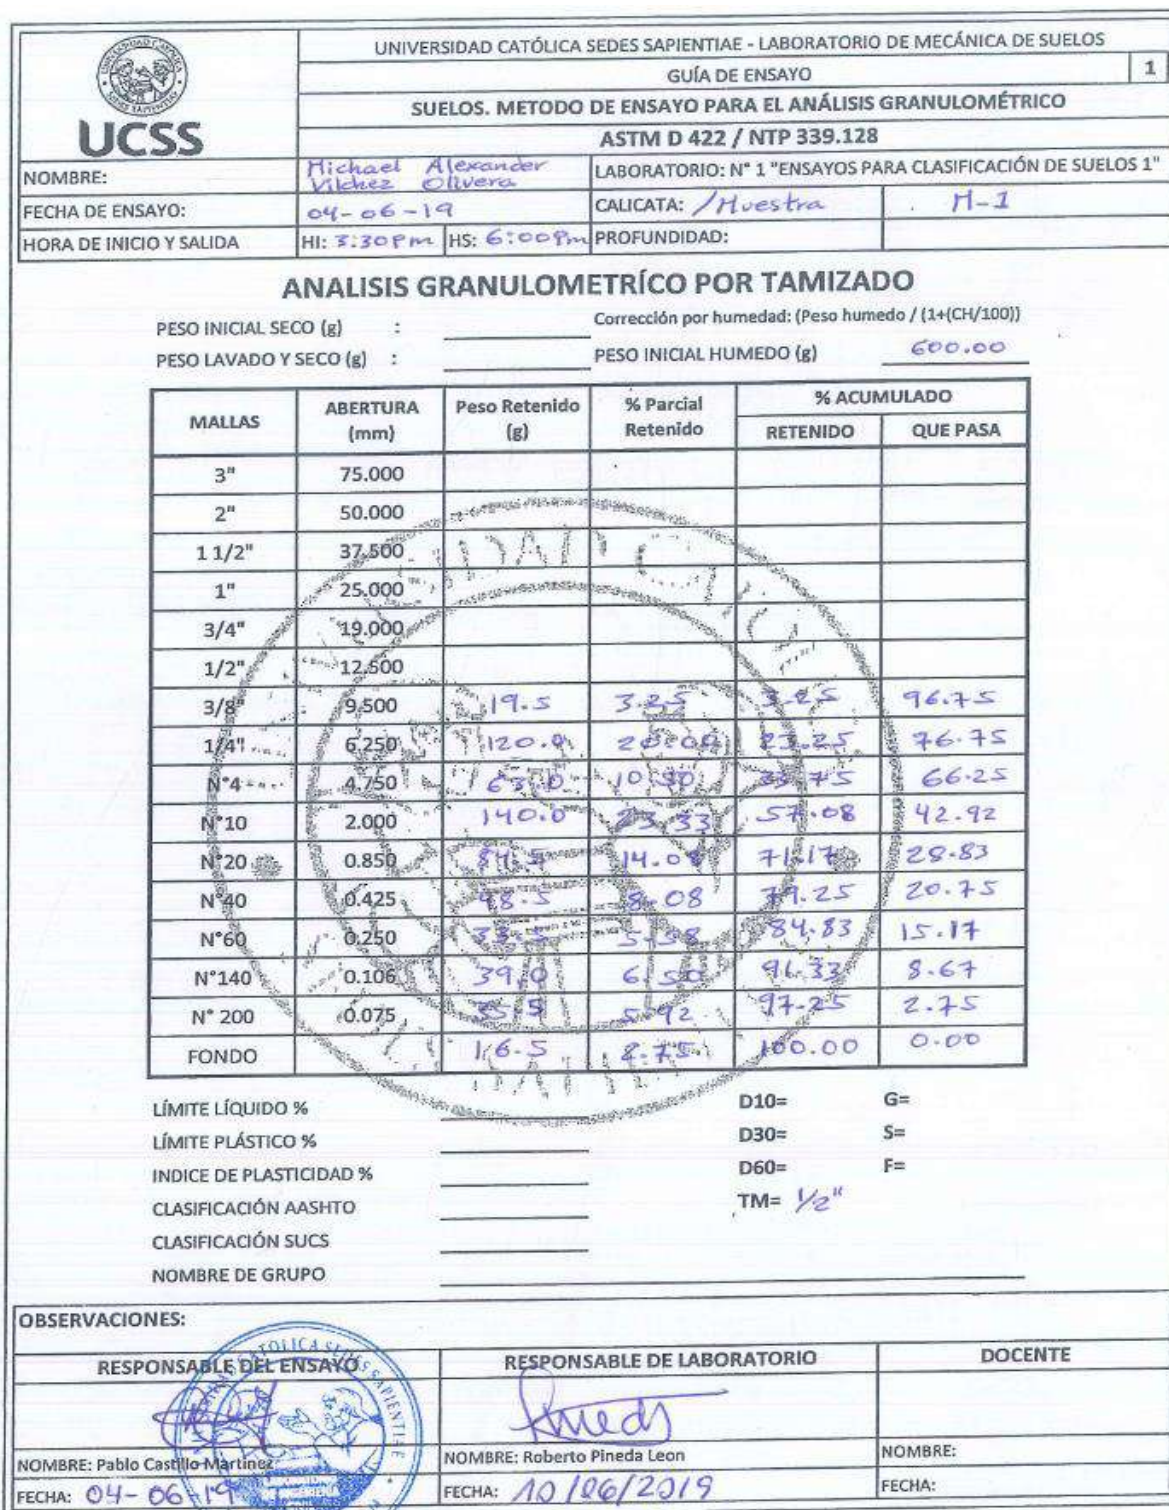 UNIVERSIDAD CATÓLICA SEDES SAPIENTIAE - LABORATORIO DE MECÁNICA DE SUELOS
GUÍA DE ENSAYO 1
SUELOS. METODO DE ENSAYO PARA EL ANÁLISIS GRANULOMÉTRICO
UCSS
ASTM D 422 / NTP 339.128
NOMBRE: Michael Alexander Vilchez Olivera LABORATORIO: N° 1 "ENSAYOS PARA CLASIFICACIÓN DE SUELOS 1"
FECHA DE ENSAYO: 04-06-19 CALICATA: /Muestra M-1
HORA DE INICIO Y SALIDA HI: 3:30pm HS: 6:00pm PROFUNDIDAD:
ANALISIS GRANULOMETRÍCO POR TAMIZADO
PESO INICIAL SECO (g) : Corrección por humedad: (Peso humedo / (1+(CH/100))
PESO LAVADO Y SECO (g) : PESO INICIAL HUMEDO (g) 600.00
MALLAS ABERTURA (mm) Peso Retenido (g) % Parcial Retenido % ACUMULADO
RETENIDO QUE PASA
3" 75.000
2" 50.000
1 1/2" 37.500
1" 25.000
3/4" 19.000
1/2" 12.500
3/8" 9.500 19.5 3.25 3.25 96.75
1/4" 6.250 120.0 20.00 23.25 76.75
N°4 4.750 63.0 10.50 33.75 66.25
N°10 2.000 140.0 23.33 57.08 42.92
N°20 0.850 84.5 14.08 71.17 28.83
N°40 0.425 48.5 8.08 79.25 20.75
N°60 0.250 33.5 5.58 84.83 15.17
N°140 0.106 39.0 6.50 91.33 8.67
N° 200 0.075 35.5 5.92 97.25 2.75
FONDO 16.5 2.75 100.00 0.00
LÍMITE LÍQUIDO % D10= G=
LÍMITE PLÁSTICO % D30= S=
INDICE DE PLASTICIDAD % D60= F=
CLASIFICACIÓN AASHTO TM= 1/2"
CLASIFICACIÓN SUCS
NOMBRE DE GRUPO
OBSERVACIONES:
RESPONSABLE DEL ENSAYO RESPONSABLE DE LABORATORIO DOCENTE
NOMBRE: Pablo Castillo Martinez NOMBRE: Roberto Pineda Leon NOMBRE:
FECHA: 04-06-19 FECHA: 10/06/2019 FECHA: